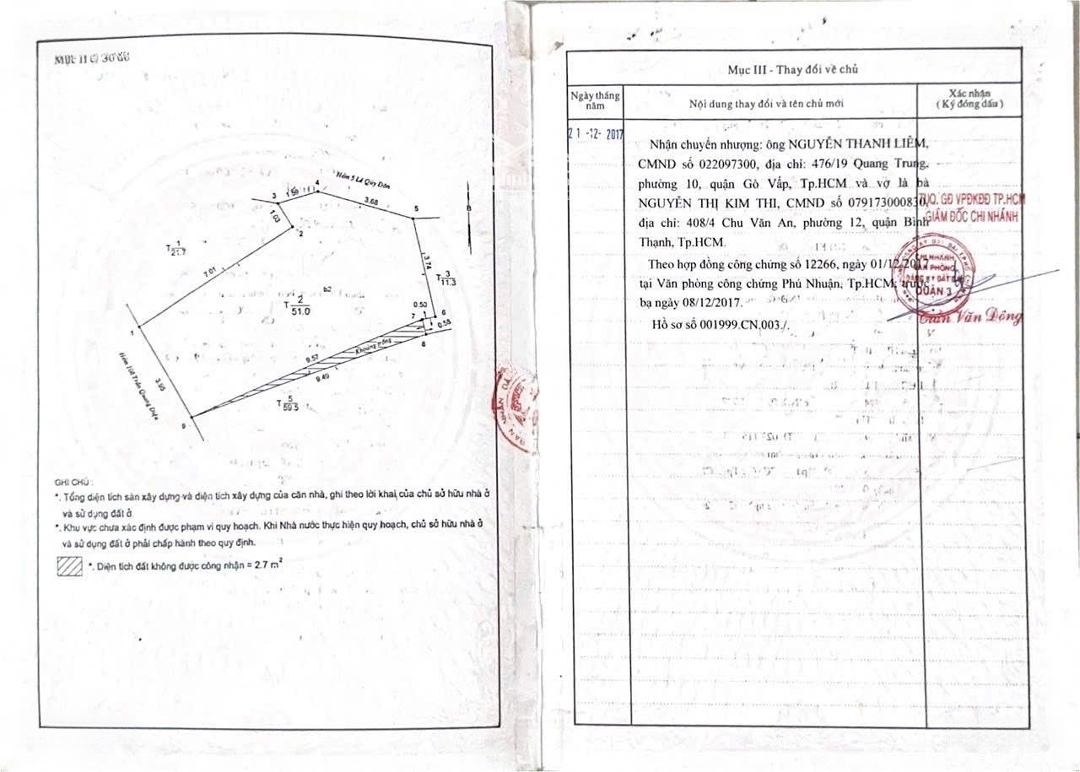 Hẻm 5 Lê Quý Đôn
3
1.59
4
3.68
5
B
1.03
2
T 1
21.7
7.01
3.74
T 3
11.3
b2
T 2
51.0
0.50
7
6
0.58
8
1
Khoảng trống
9.57
9.49
3.95
Hẻm 168 Trần Quang Diệu
T 5
59.5
9
GHI CHÚ :
*. Tổng diện tích sàn xây dựng và diện tích xây dựng của căn nhà, ghi theo lời khai của chủ sở hữu nhà ở
và sử dụng đất ở.
*. Khu vực chưa xác định được phạm vi quy hoạch. Khi Nhà nước thực hiện quy hoạch, chủ sở hữu nhà ở
và sử dụng đất ở phải chấp hành theo quy định.
*. Diện tích đất không được công nhận = 2.7 m²
Mục III - Thay đổi về chủ
Ngày tháng năm
Nội dung thay đổi và tên chủ mới
Xác nhận
( Ký đóng dấu )
21 -12- 2017
Nhận chuyển nhượng: ông NGUYỄN THANH LIÊM,
CMND số 022097300, địa chỉ: 476/19 Quang Trung,
phường 10, quận Gò Vấp, Tp.HCM và vợ là bà
NGUYỄN THỊ KIM THI, CMND số 079173000830,
địa chỉ: 408/4 Chu Văn An, phường 12, quận Bình
Thạnh, Tp.HCM.
Theo hợp đồng công chứng số 12266, ngày 01/12/2017
tại Văn phòng công chứng Phú Nhuận, Tp.HCM, trước
bạ ngày 08/12/2017.
Hồ sơ số 001999.CN.003./.
TUQ. GĐ VPĐKĐĐ TP.HCM
GIÁM ĐỐC CHI NHÁNH
CHI NHÁNH
VĂN PHÒNG
ĐĂNG KÝ ĐẤT ĐAI
QUẬN 3
Trần Văn Đông